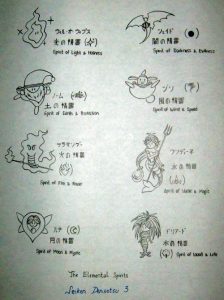 ウィル・オ・ウィスプ
光の精霊
Spirit of Light & Holiness
シェイド
闇の精霊
Spirit of Darkness & Evilness
ノーム
土の精霊
Spirit of Earth & Protection
ジン
風の精霊
Spirit of Wind & Speed
サラマンダー
火の精霊
Spirit of Fire & Power
ウンディーネ
水の精霊
Spirit of Water & Magic
ルナ
月の精霊
Spirit of Moon & Mystic
ドリアード
木の精霊
Spirit of Wood & Life
The Elemental Spirits
Seiken Densetsu 3